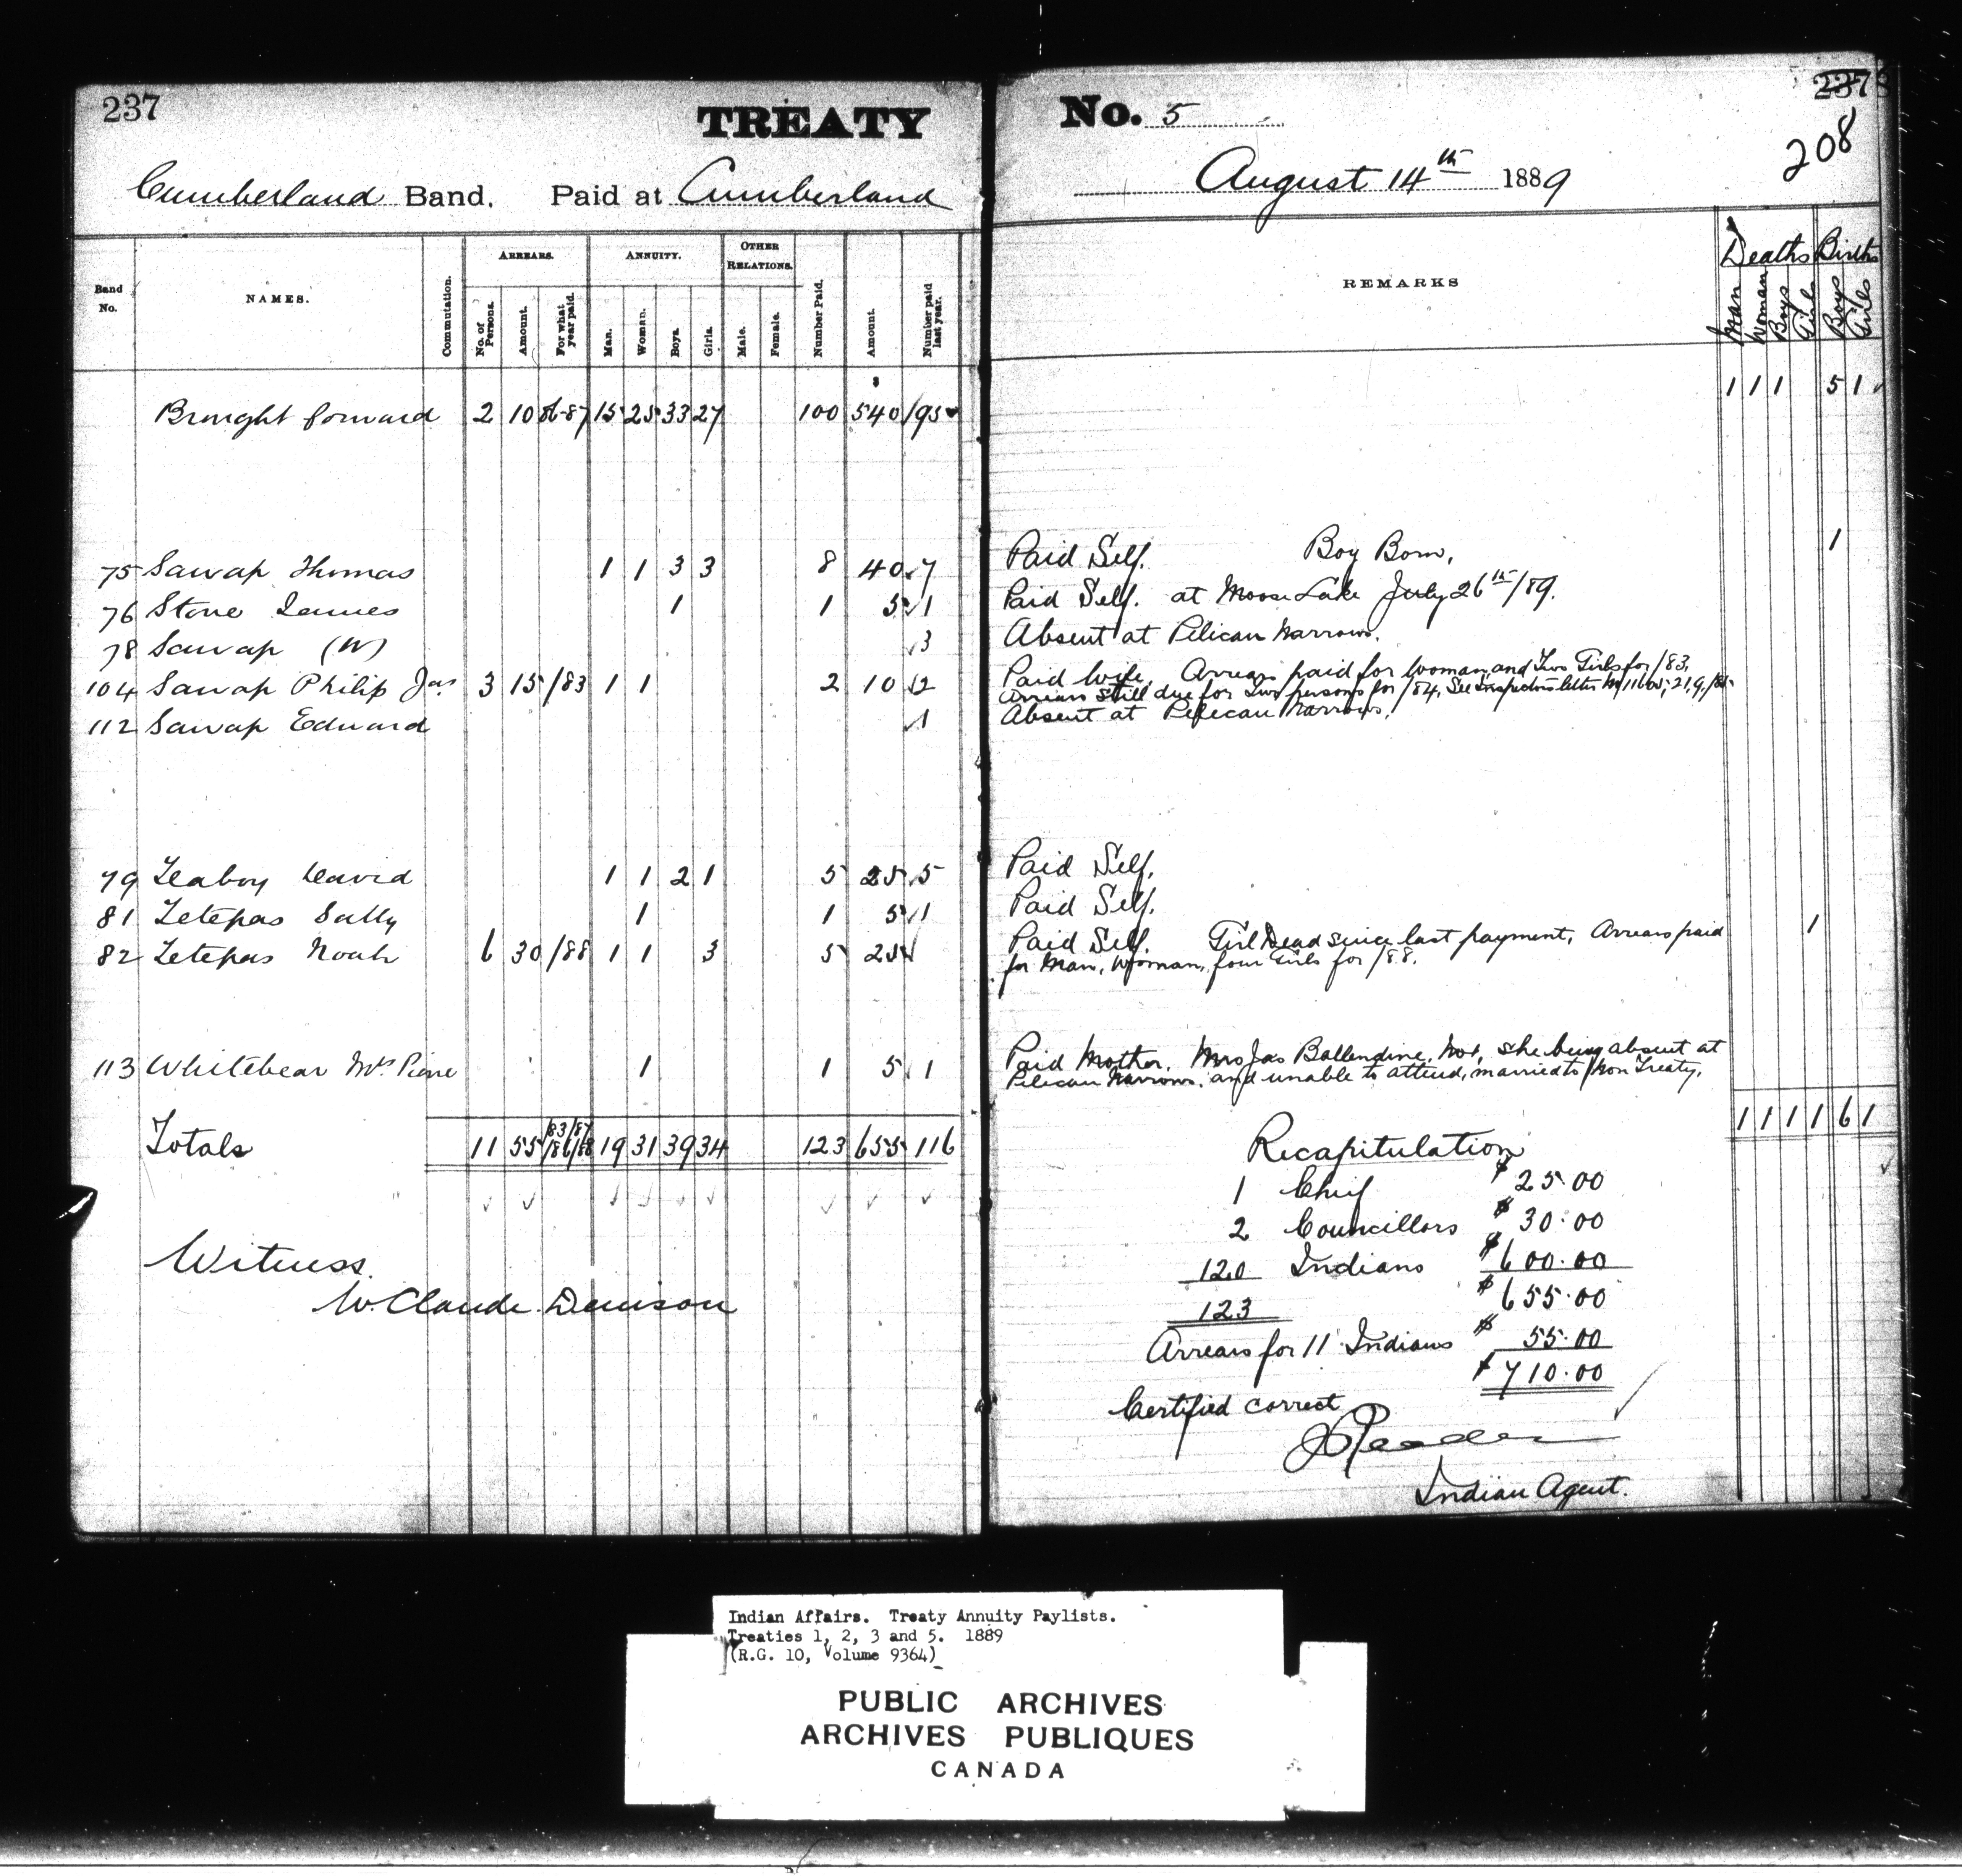 237
TREATY
No. 5
237
208
Cumberland Band. Paid at Cumberland
August 14th 1889
Band No.
NAMES.
Commutation.
ARREARS.
No. of Persons.
Amount.
For what year paid.
ANNUITY.
Man.
Woman.
Boys.
Girls.
OTHER RELATIONS.
Male.
Female.
Number Paid.
Amount.
Number paid last year.
REMARKS
Deaths
Man
Woman
Boys
Girls
Births
Boys
Girls
Brought forward 2 10 86-87 15 25 33 27 100 540 /95 1 1 1 5 1
75 Sawap Thomas 1 1 3 3 8 40 7 Paid Self. Boy Born, 1
76 Stone James 1 1 5 1 Paid Self. at Moose Lake July 26th/89.
78 Sawap (W) 3 Absent at Pelican Narrows.
104 Sawap Philip Jas 3 15 /83 1 1 2 10 2 Paid wife. Arrears paid for woman and Two Girls for /83,
Arrears still due for Two persons for /84, See Inspectors letter
112 Sawap Edward 1 Absent at Pelican Narrows.
79 Teaboy David 1 1 2 1 5 25 5 Paid Self.
81 Tetepas Sally 1 1 5 1 Paid Self.
82 Tetepas Noah 6 30 /88 1 1 3 5 25 Paid Self. Girl Dead since last payment, Arrears paid 1
for Man, Woman, four Girls for /88.
113 Whitebear Mrs Pierre 1 1 5 1 Paid Mother. Mrs Jas Ballendine. No1, she being absent at
Pelican Narrows. and unable to attend, married to Non Treaty.
Totals 11 55 /83/87 /86/88 19 31 39 34 123 655 116 1 1 1 1 6 1
Recapitulation
1 Chief $25.00
2 Councillors $30.00
120 Indians $600.00
123 $655.00
Arrears for 11 Indians $55.00
$710.00
Witness.
W. Claude Denison
Certified correct
J Reader
Indian Agent.
Indian Affairs. Treaty Annuity Paylists.
Treaties 1, 2, 3 and 5. 1889
(R.G. 10, Volume 9364)
PUBLIC ARCHIVES
ARCHIVES PUBLIQUES
CANADA